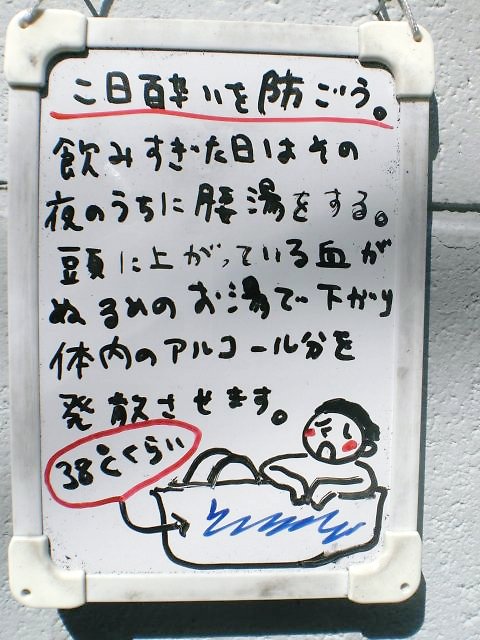 二日酔いを防ごう。
飲みすぎた日はその
夜のうちに腰湯をする。
頭に上がっている血が
ぬるめのお湯で下がり
体内のアルコール分を
発散させます。
38℃くらい